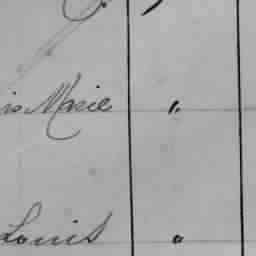 is Marie "
Louis "